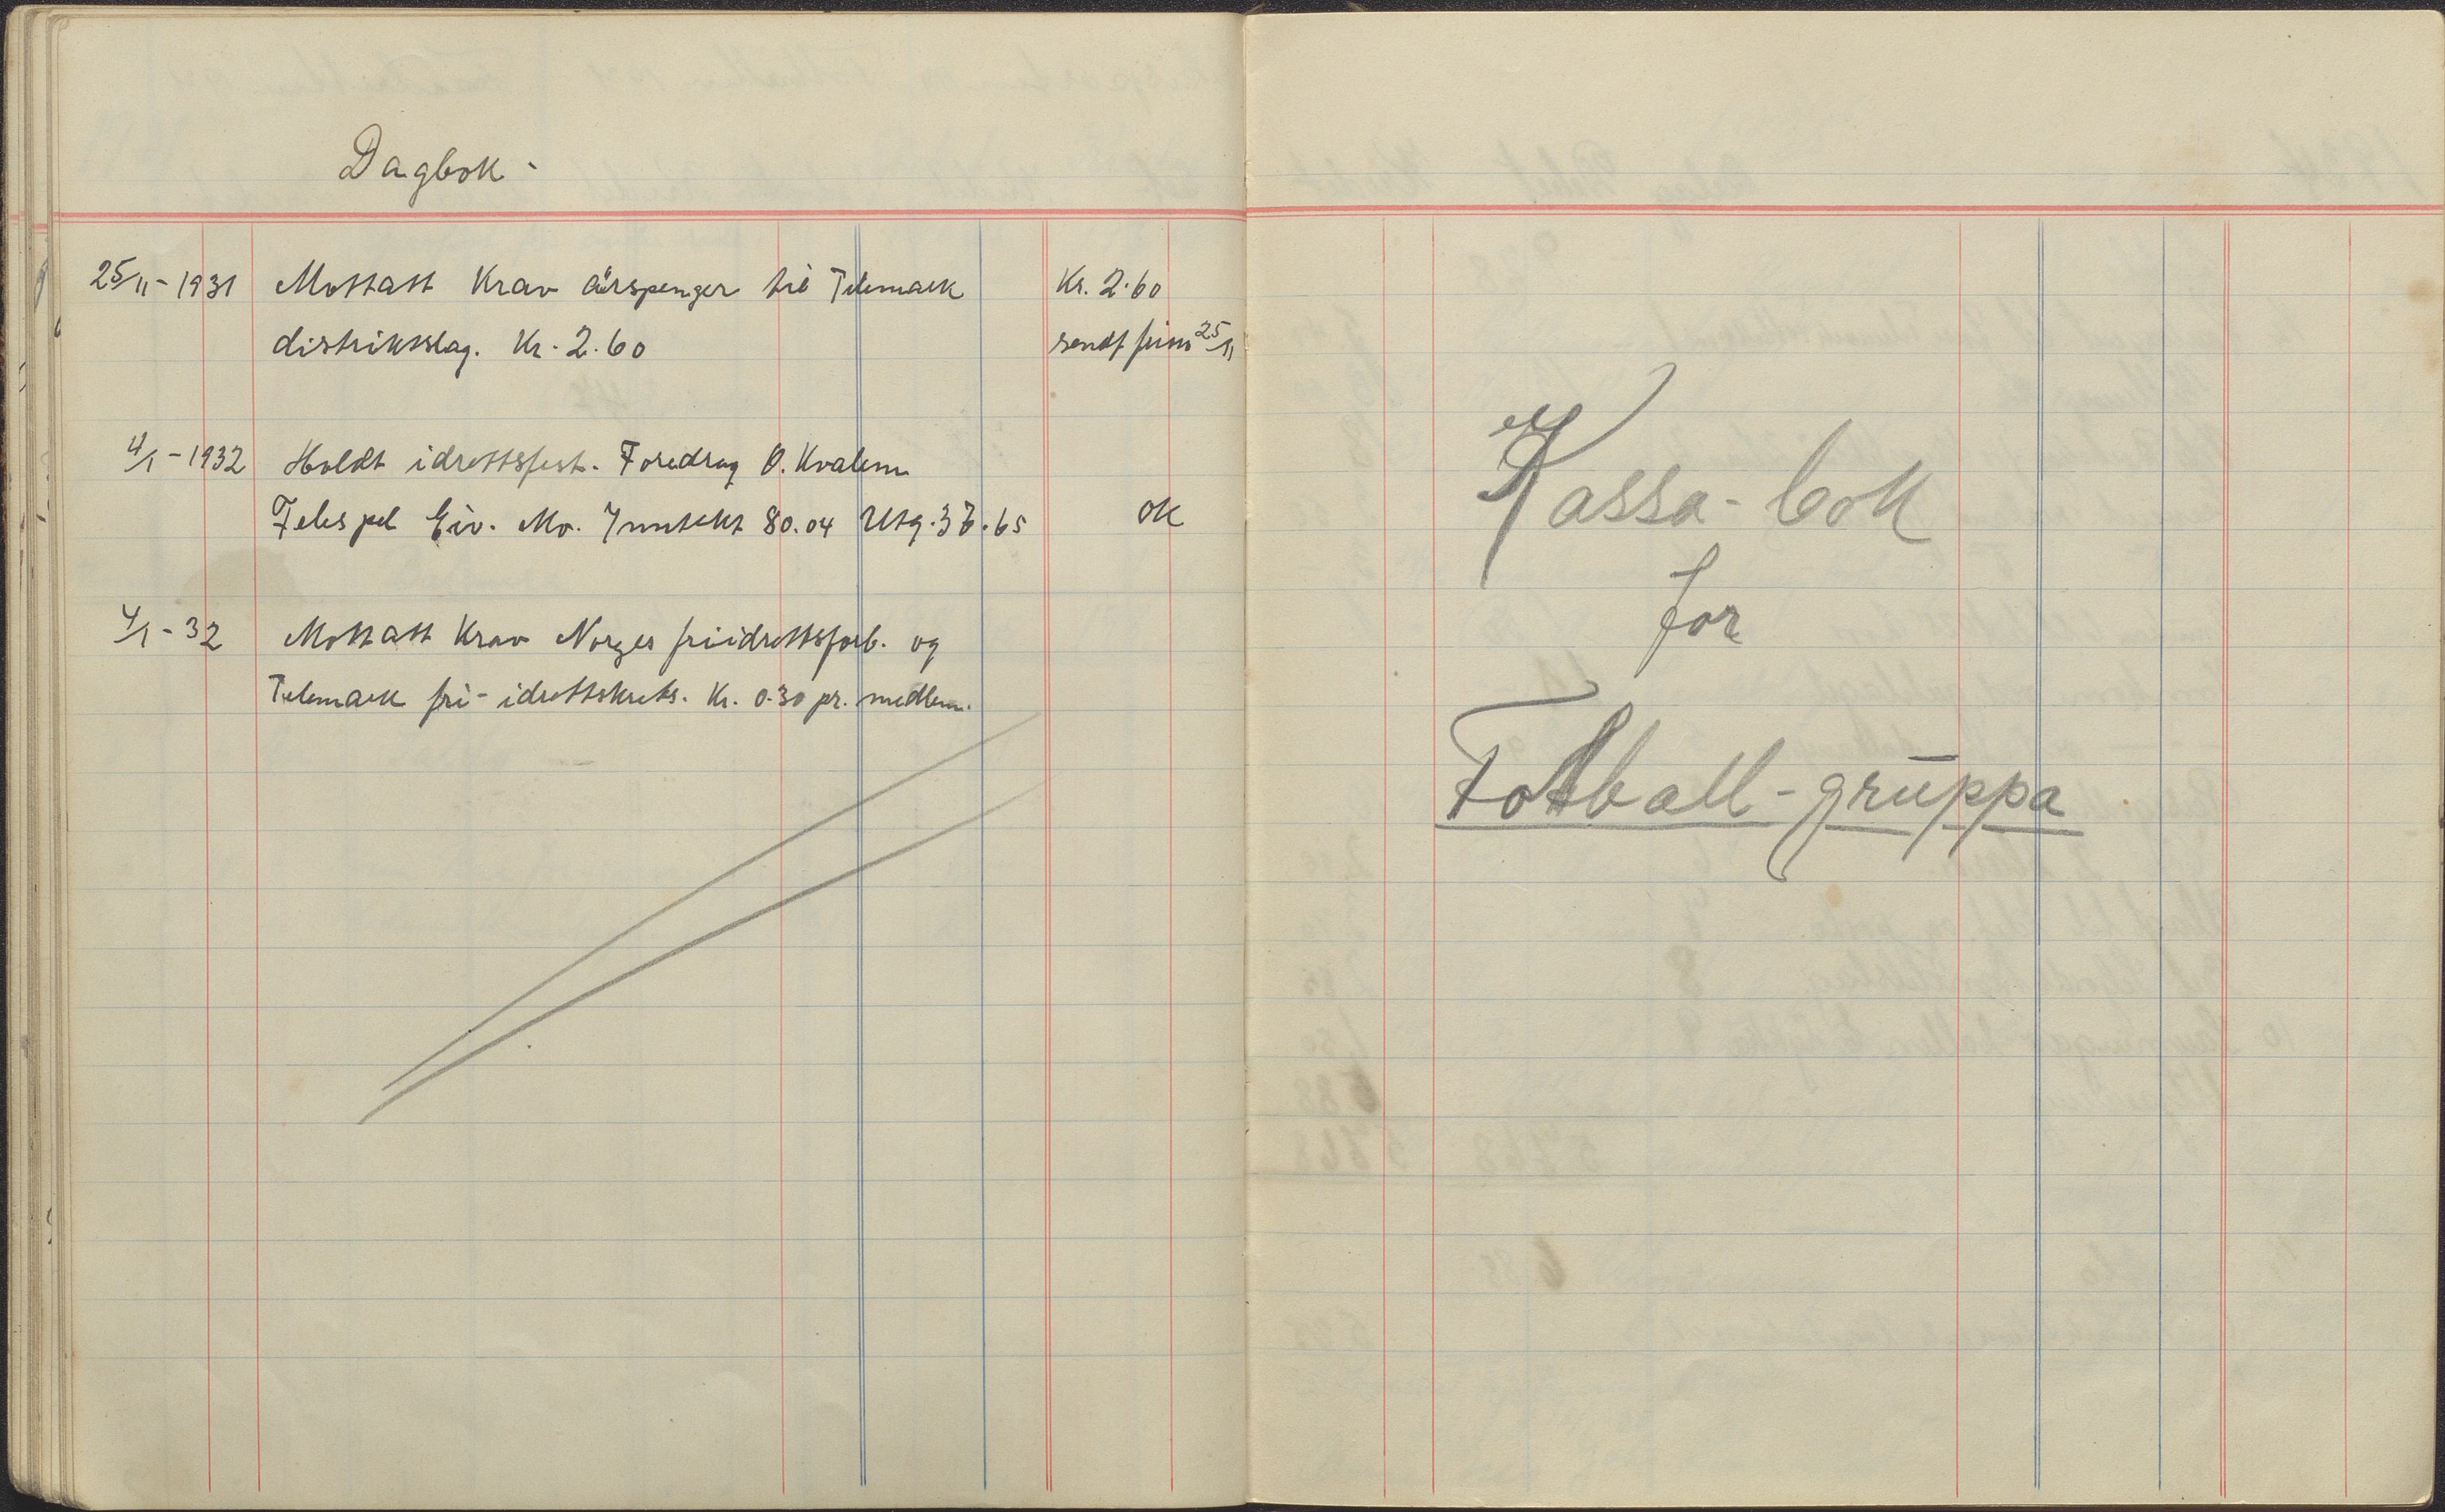 Dagbok -
25/11 - 1931 Mottatt Krav årspenger til Telemark Kr. 2.60
distriktslag. Kr. 2.60 sendt 25/11
4/1 - 1932 Holdt idrettsfest. Foredrag O. Kvalem
Felespel Eiv. Mo. Inntekt 80.04 Utg. 37.65 ok
4/1 - 32 Mottatt Krav Norges friidrettsforb. og
Telemark fri-idrettskrets. Kr. 0.30 pr. medlem.
Kassa-bok
for
Fotball-gruppa